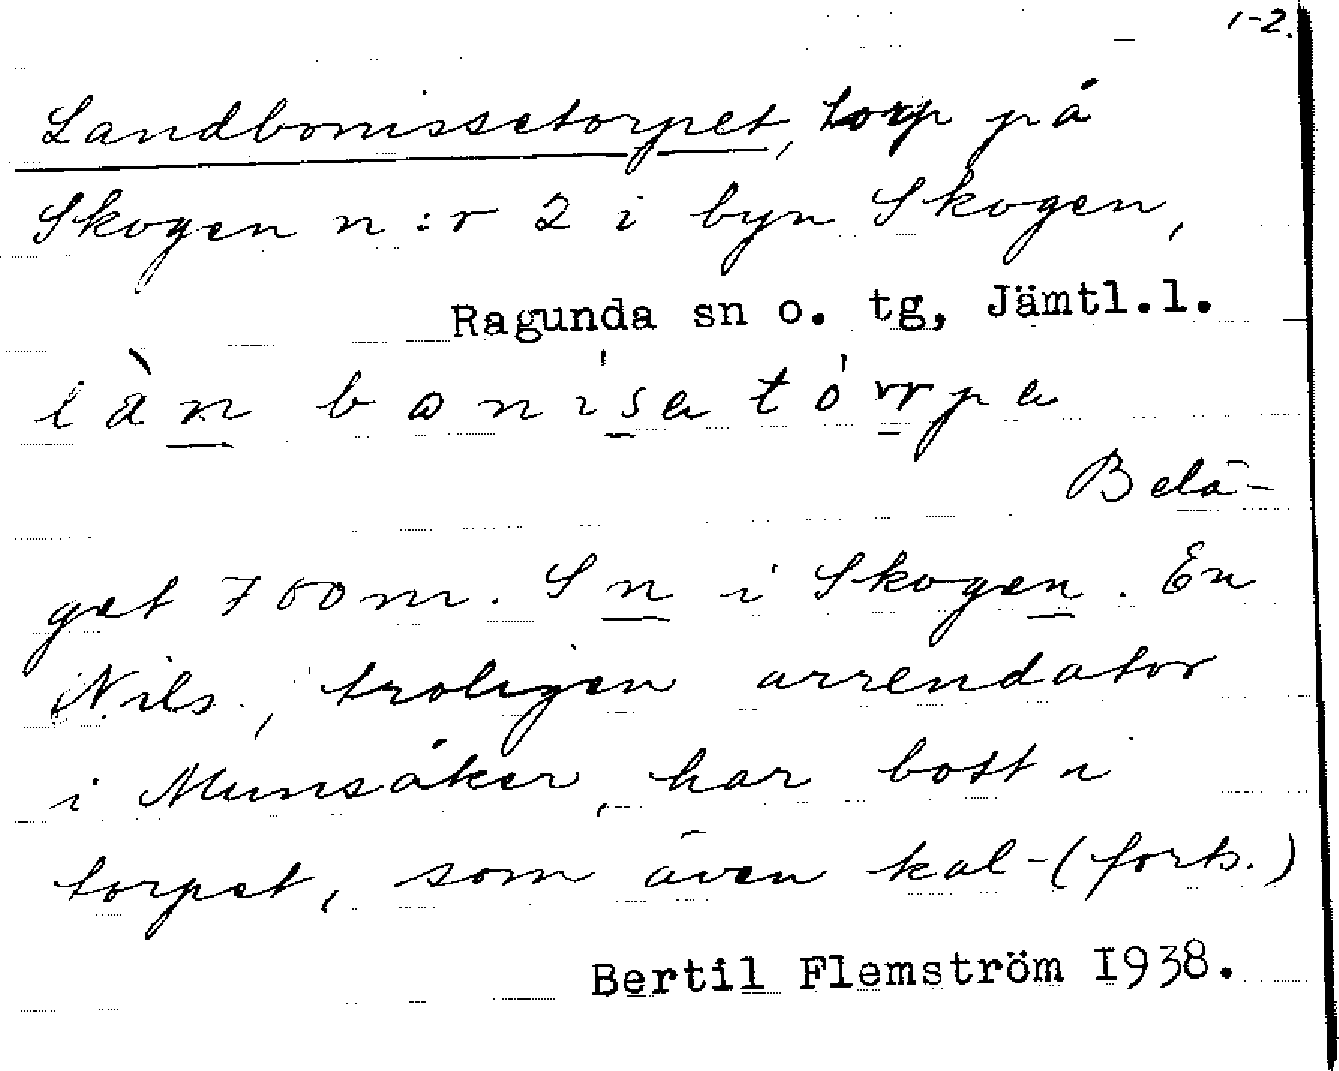 1-2.
Landbonissetorpet, torp på
Skogen n:r 2 i byn Skogen,
Ragunda sn o. tg, Jämtl.l.
làn bonisa tórrpa
Belä-
get 700 m. S n i Skogen. En
Nils, troligen arrendator
i Munsåker, har bott i
torpet, som även kal-(forts.)
Bertil Flemström 1938.